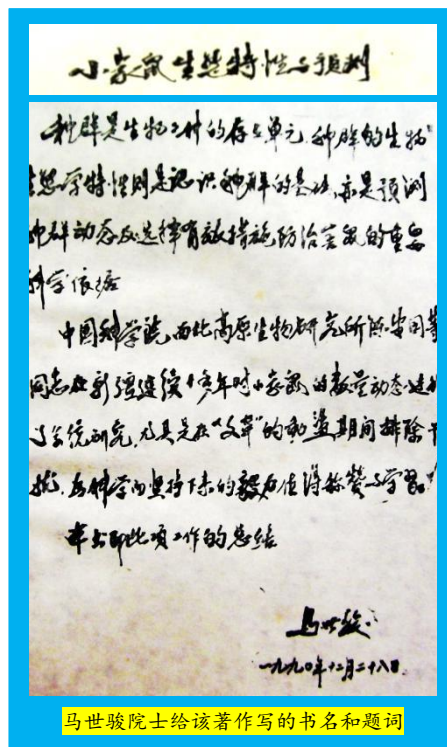 小家鼠生态特性与预测
种群是生物物种的存在单元，种群的生物
生态学特性则是认识种群的基础，亦是预测
种群动态及选择有效措施防治害鼠的重要
科学依据
中国科学院西北高原生物研究所陈安国等
同志在新疆连续十多年对小家鼠的数量动态进行
了系统研究，尤其是在“文革”的动荡期间排除干
扰，为科学而坚持下来的毅力值得称赞与学习。
本书即此项工作的总结
马世骏
一九九〇年十二月二十八日
马世骏院士给该著作写的书名和题词